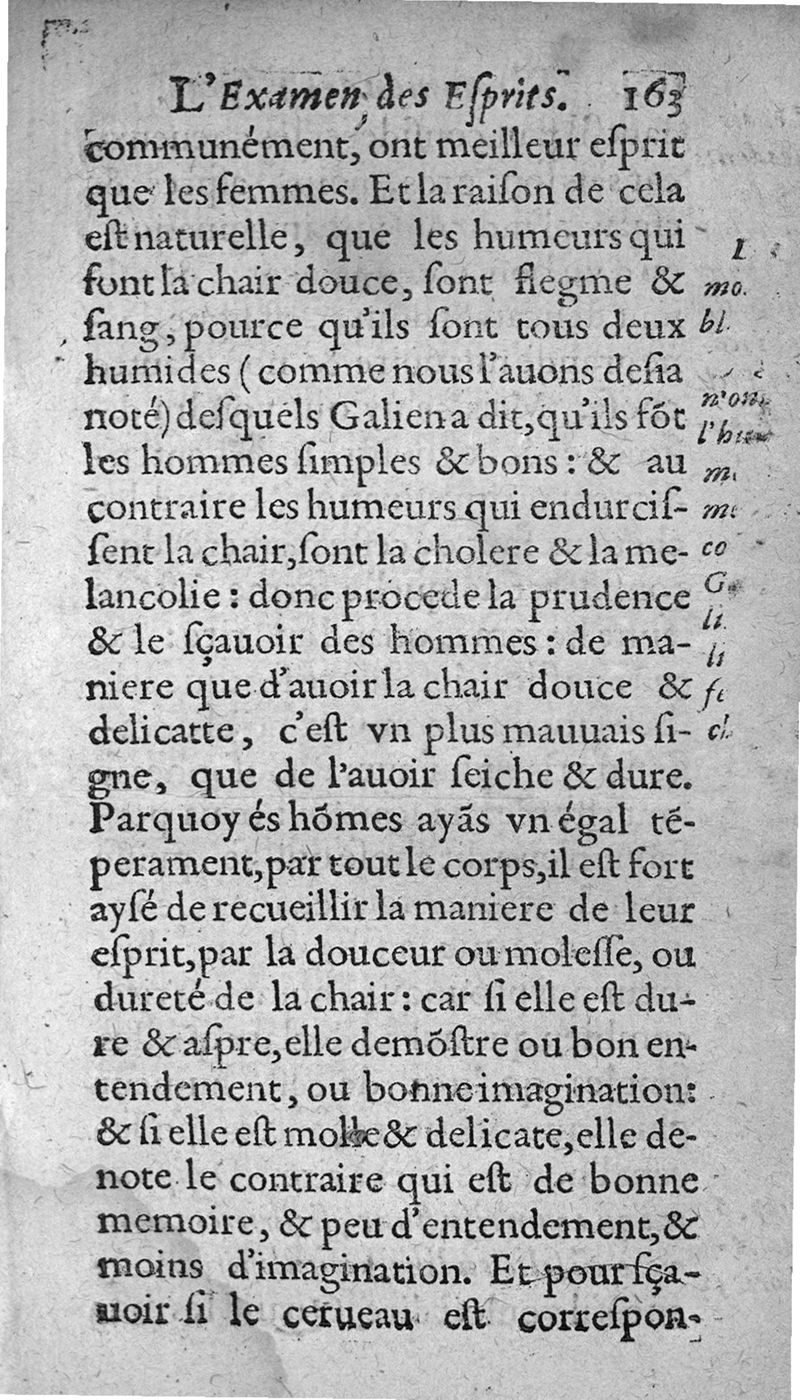 L'Examen des Eſprits. 163
communément, ont meilleur eſprit
que les femmes. Et la raiſon de cela
eſt naturelle, que les humeurs qui
font la chair douce, ſont flegme &
ſang, pource qu'ils ſont tous deux
humides (comme nous l'auons deſia
noté) deſquels Galien a dit, qu'ils fõt
les hommes ſimples & bons: & au
contraire les humeurs qui endurciſ-
ſent la chair, ſont la cholere & la me-
lancolie: donc procede la prudence
& le ſçauoir des hommes: de ma-
niere que d'auoir la chair douce &
delicatte, c'eſt vn plus mauuais ſi-
gne, que de l'auoir ſeiche & dure.
Parquoy és hõmes ayãs vn égal tẽ-
perament, par tout le corps, il eſt fort
ayſé de recueillir la maniere de leur
eſprit, par la douceur ou moleſſe, ou
dureté de la chair: car ſi elle eſt du-
re & aſpre, elle demõſtre ou bon en-
tendement, ou bonne imagination:
& ſi elle eſt molle & delicate, elle de-
note le contraire qui eſt de bonne
memoire, & peu d'entendement, &
moins d'imagination. Et pour ſça-
uoir ſi le cerueau eſt correſpon-
mo.
bl.
n'on
l'hu
m
me
co
G
li
li
ſi